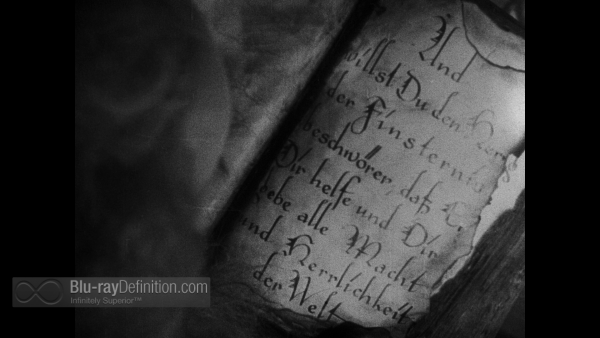 Und
willst Du den
der Finsternis
beschwören, daß Er
Dir helfe und Dir
gebe alle Macht
und Herrlichkeit
der Welt
Blu-rayDefinition.com
Infinitely Superior™